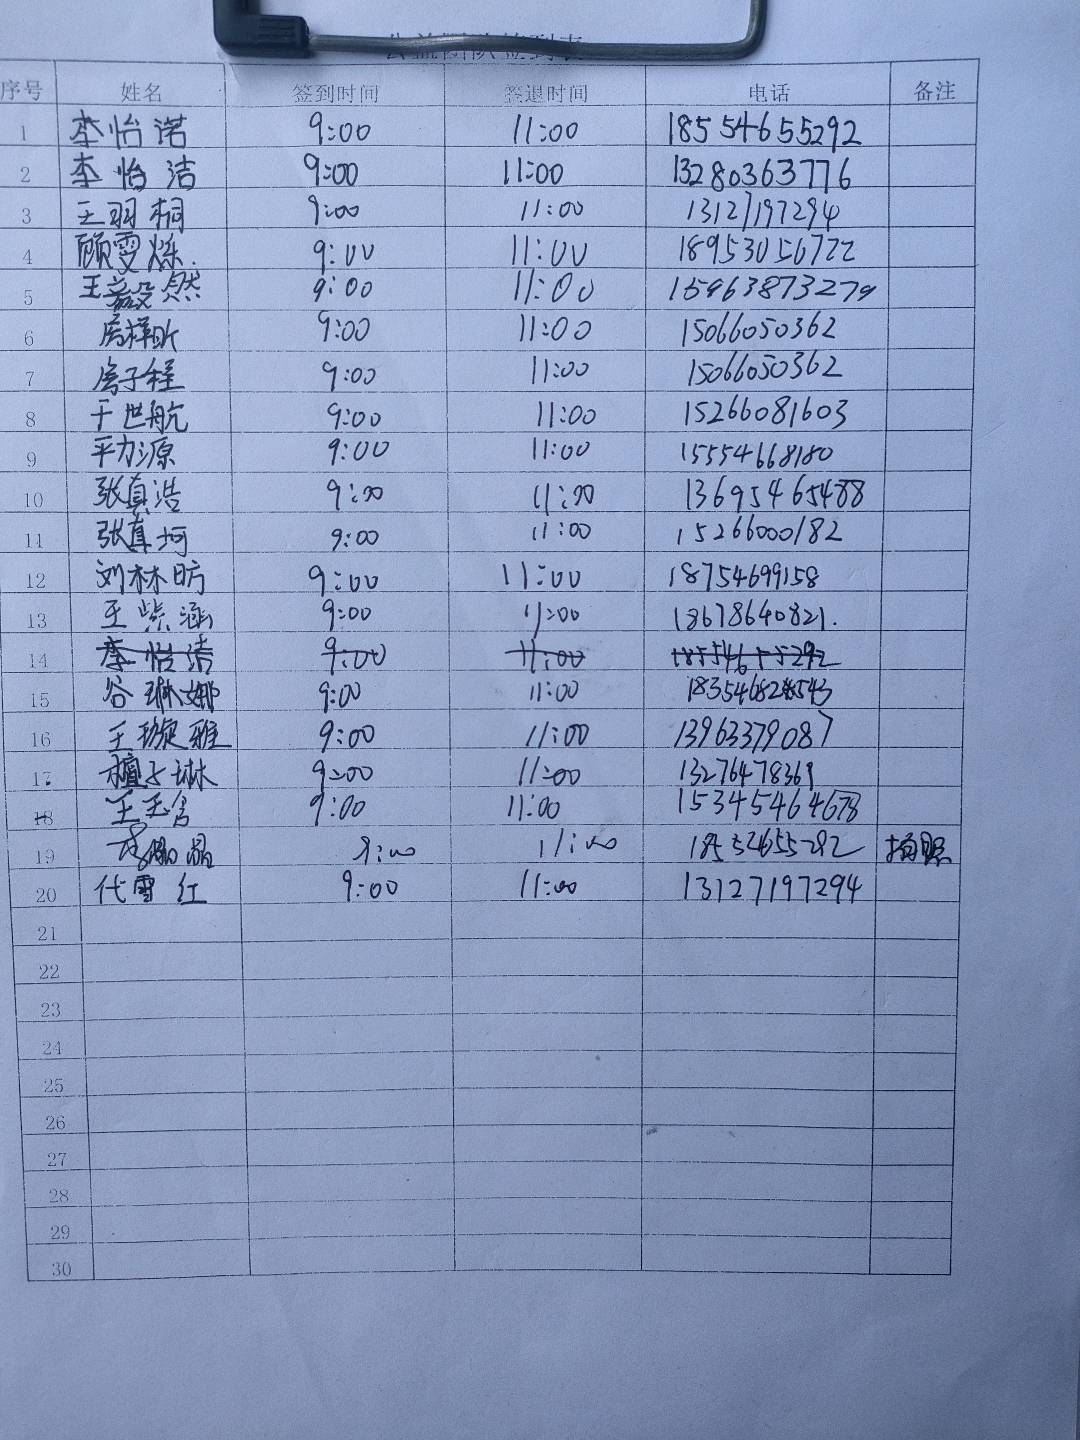 公益团队签到表
序号 姓名 签到时间 签退时间 电话 备注
1 李怡诺 9:00 11:00 18554655292
2 李怡洁 9:00 11:00 13280363776
3 王羽桐 9:00 11:00 13127197294
4 顾雯烁. 9:00 11:00 18953056722
5 王毅然 9:00 11:00 15963873279
6 房梓昕 9:00 11:00 15066050362
7 房子程 9:00 11:00 15066050362
8 于世航 9:00 11:00 15266081603
9 平力源 9:00 11:00 15554668180
10 张真浩 9:00 11:00 13695465488
11 张真珂 9:00 11:00 15266000182
12 刘林昉 9:00 11:00 18754699158
13 王紫涵 9:00 11:00 18678640821.
14 李怡洁 9:00 11:00 18554655292
15 谷琳娜 9:00 11:00
16 王璇雅 9:00 11:00 13963379087
17 檀子琳 9:00 11:00 13276478369
18 王玉含 9:00 11:00 15345464678
19 9:00 11:00 拍照
20 代雪红 9:00 11:00 13127197294
21
22
23
24
25
26
27
28
29
30